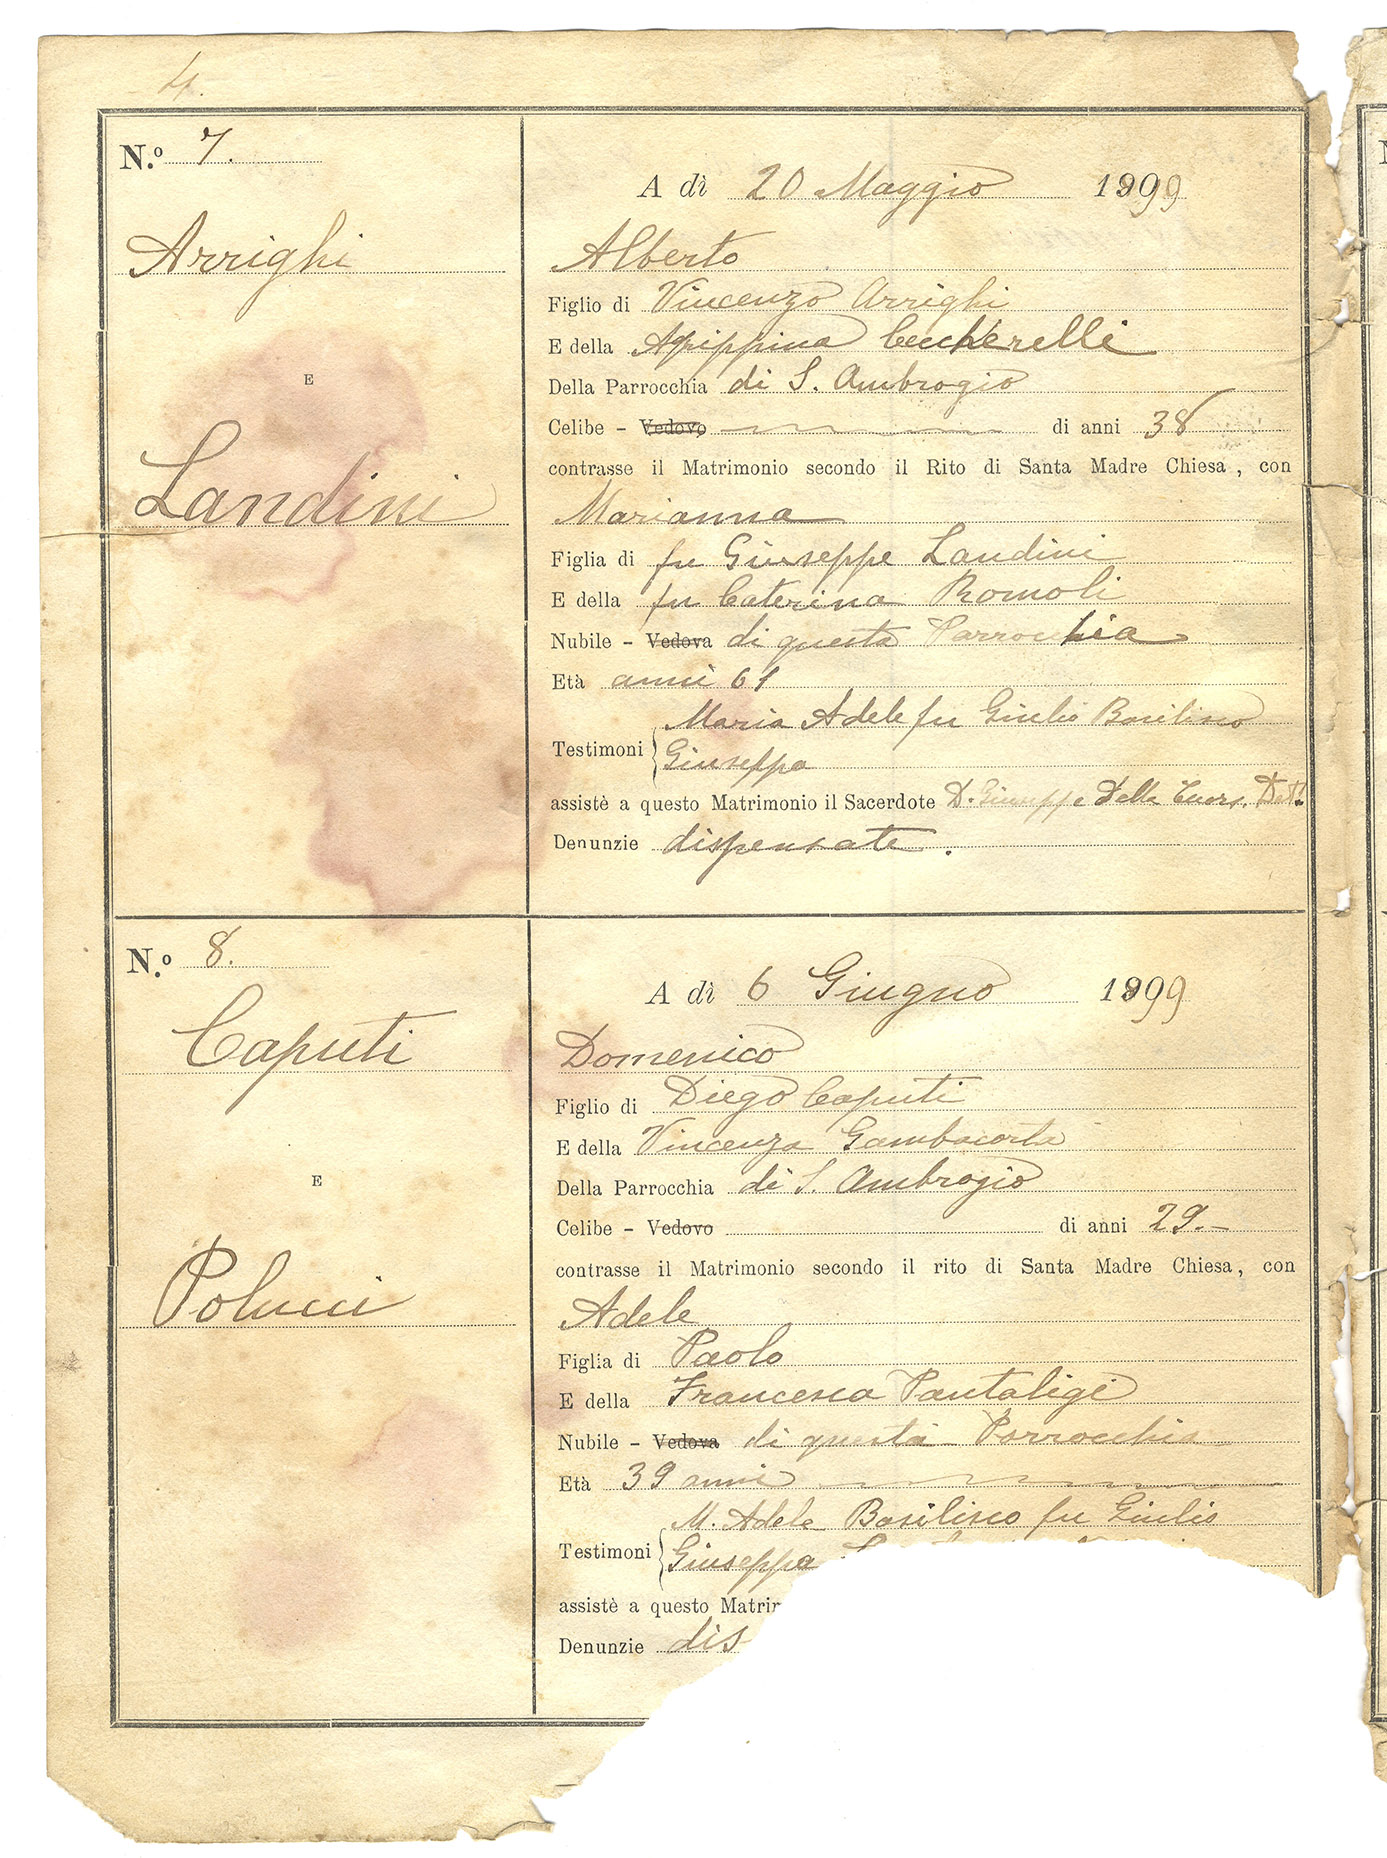 4.
N.º 7.
Arrighi
E
Landini
A dì 20 Maggio 1899
Alberto
Figlio di Vincenzo Arrighi
E della Agrippina Ceccherelli
Della Parrocchia di S. Ambrogio
Celibe - Vedovo di anni 38
contrasse il Matrimonio secondo il Rito di Santa Madre Chiesa, con
Marianna
Figlia di fu Giuseppe Landini
E della fu Caterina Romoli
Nubile - Vedova di questa Parrocchia
Età anni 61
Maria Adele fu Giulio Basilisco
Testimoni
Giuseppa
assistè a questo Matrimonio il Sacerdote D. Giuseppe Delle
Denunzie dispensate.
N.º 8.
Caputi
E
Polucci
A dì 6 Giugno 1899
Domenico
Figlio di Diego Caputi
E della Vincenza Gambacorta
Della Parrocchia di S. Ambrogio
Celibe - Vedovo di anni 29.-
contrasse il Matrimonio secondo il rito di Santa Madre Chiesa, con
Adele
Figlia di Paolo
E della Francesca Pantaligi
Nubile - Vedova di questa Parrocchia
Età 39 anni
M. Adele Basilisco fu Giulio
Testimoni
Giuseppa
assistè a questo Matrim
Denunzie dis